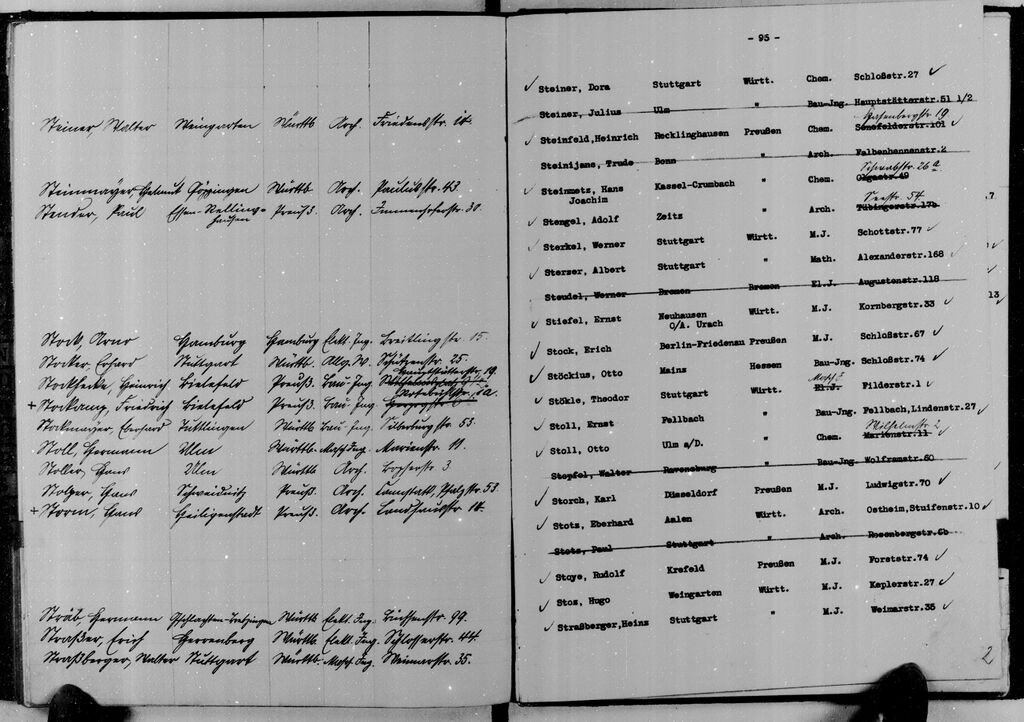 Steiner Walter Weingarten Württb Arch. Friedenstr. 10.
Steinmayer Helmut Göppingen Württb Arch. Paulinstr. 43
Stender, Paul Essen-Relling- Preuß. Arch. Immenhoferstr. 30.
hausen
Stock, Arno Hamburg Hamburg Elekt. Ing. Breitlingstr. 15.
Stocker, Erhard Stuttgart Württb. Allg. W. Schützenstr. 25.
Hauptstätterstr. 19.
Stockhecke, Heinrich Bielefeld Preuß. Bau-Ing.
+ Stockamp, Friedrich Bielefeld Preuß. Bau-Ing
Stockmayer, Eberhard Tuttlingen Württb Bau-Ing. Silberburgstr. 53.
Stoll, Hermann Ulm Württb. Masch Ing. Marienstr. 11.
Stoller, Hans Ulm Württb Arch. Bopserstr. 3
Stolper, Hans Schweidnitz Preuß. Arch. Cannstatt, Pfalzstr. 53.
+ Storm, Hans Heiligenstadt Preuß. Arch. Landhausstr. 10.
Sträb, Hermann Württb Elekt. Ing. Büchsenstr. 99.
Straßer, Erich Herrenberg Württb. Elekt. Ing. Schlosserstr. 44
Straßberger, Walter Stuttgart Württb. Masch Ing. Weimarstr. 35.
- 95 -
✓ Steiner, Dora Stuttgart Württ. Chem. Schloßstr.27 ✓
Steiner, Julius Ulm " Bau-Jng. Hauptstätterstr.51 1/2
Hasenbergstr. 19
✓ Steinfeld,Heinrich Recklinghausen Preußen Chem. Senefelderstr.101 ✓
Steinijans, Trude Bonn " Arch. Falbenhennenstr.2
Schwabstr. 26a
✓ Steinmetz, Hans Kassel-Crumbach " Chem. Olgastr.49
Joachim
Seestr. 54
✓ Stengel, Adolf Zeitz " Arch. Tübingerstr.17b
✓ Sterkel, Werner Stuttgart Württ. M.J. Schottstr.77 ✓
✓ Sterzer, Albert Stuttgart " Math. Alexanderstr.168 ✓
Steudel, Werner Bremen Bremen El.J. Augustenstr.118
✓ Stiefel, Ernst Neuhausen Württ. M.J. Kornbergstr.33 ✓
O/A. Urach
✓ Stock, Erich Berlin-Friedenau Preußen M.J. Schloßstr.67 ✓
✓ Stöckius, Otto Mainz Hessen Bau-Jng. Schloßstr.74 ✓
Masch J
✓ Stökle, Theodor Stuttgart Württ. El.J. Filderstr.1 ✓
✓ Stoll, Ernst Fellbach " Bau-Jng. Fellbach,Lindenstr.27 ✓
Wilhelmstr 2
✓ Stoll, Otto Ulm a/D. " Chem. Marienstr.11 ✓
Stopfel, Walter Ravensburg " Bau-Jng. Wolframstr.60
✓ Storch, Karl Düsseldorf Preußen M.J. Ludwigstr.70 ✓
✓ Stotz, Eberhard Aalen Württ. Arch. Ostheim,Stuifenstr.10 ✓
Stotz, Paul Stuttgart " Arch. Rosenbergstr.6b
✓ Stoye, Rudolf Krefeld Preußen M.J. Forststr.74 ✓
✓ Stoz, Hugo Weingarten Württ. M.J. Keplerstr.27 ✓
✓ Straßberger,Heinz Stuttgart " M.J. Weimarstr.35 ✓
.7
13
2